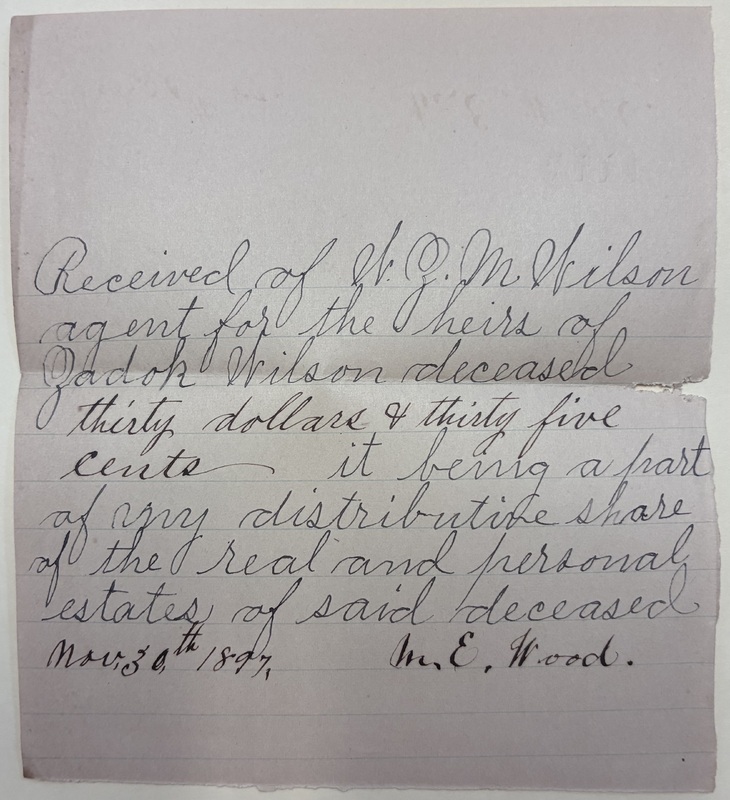 Received of W. Z. M. Wilson
agent for the heirs of
Zadok Wilson deceased
thirty dollars & thirty five
cents it being a part
of my distributive share
of the real and personal
estates of said deceased
Nov. 30th 1897, M. E. Wood.